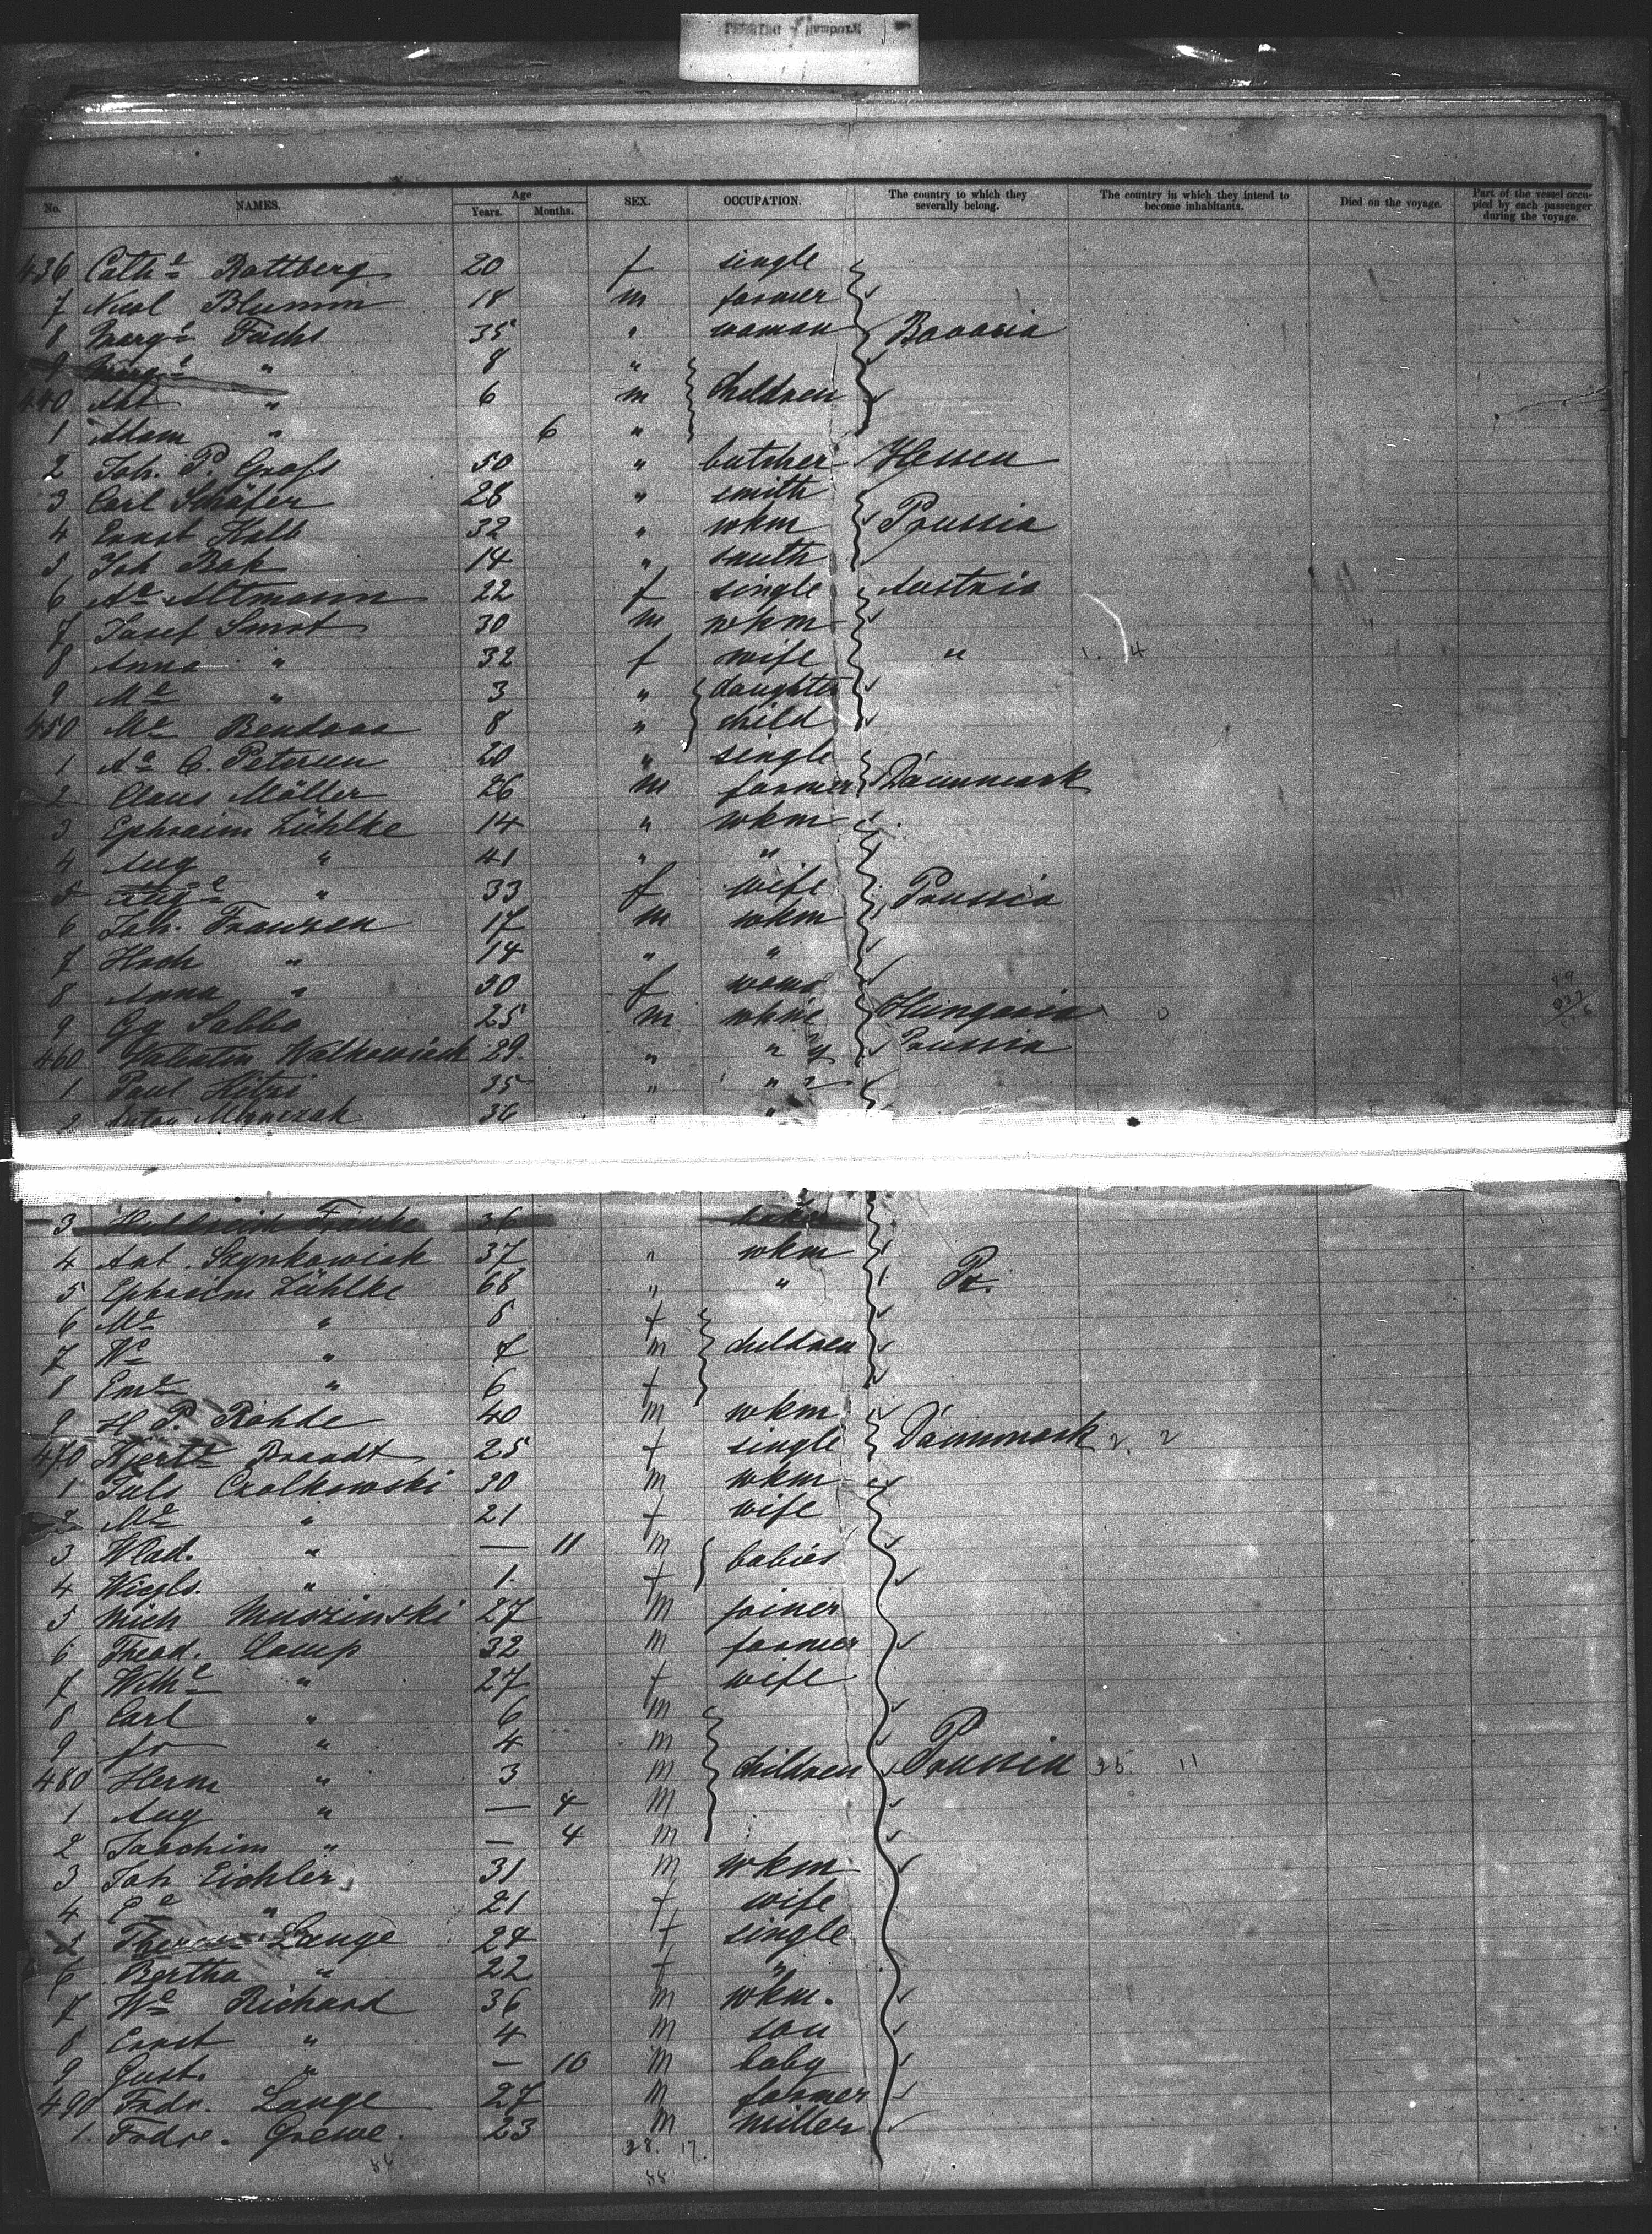 No. NAMES. Age Years. Months. SEX. OCCUPATION. The country to which they severally belong. The country in which they intend to become inhabitants. Died on the voyage. Part of the vessel occupied by each passenger during the voyage.
436 Cathe Rottberg 20 f single
7 Blumm 18 m farmer
8 Marge Fuchs 35 " woman Bavaria
9 Marge " 8 "
440 Ant " 6 m children
1 Adam " 6 "
2 Joh. P. Grofs 50 " butcher Hessen
3 Carl Schäfer 28 " smith
4 Ernst Kolb 32 " wkm Prussia
5 Joh Bak 14 " smith
6 Ae Altmann 22 f single Austria
7 Josef Smrt 30 m wkm
8 Anna " 32 f wife "
9 Me " 3 " daughter
450 Me 8 " child
1 Ae C. Petersen 20 " single
2 Claus Möller 26 m farmer Dännmark
3 Ephraim Lühlke 14 " wkm
4 Aug " 41 " "
5 Auge " 33 f wife Prussia
6 Joh. Franzen 17 m wkm
7 Hnch " 14 " "
8 Anna " 50 f
9 Gg Sabbo 25 m Hungaria
460 Valentin Walkowiack 29 " " Prussia
1 Paul 35 " "
2 Anton Mlynczak 36 "
3 36
4 Ant. Szynkowiak 37 " wkm
5 Ephraim Lühlke 68 " " Pr.
6 Me " 8 f
7 We " 7 m children
8 Eme " 6 f
9 H. P. Rohde 40 m wkm
470 Brandt 25 f single Dännmark 2. 2
1 Juls Czolkowski 30 m wkm
2 Me " 21 f wife
3 Wlad. " — 11 m babies
4 " 1 f
5 Mich Muszinski 27 m joiner
6 Theod. Lamp 32 m farmer
7 Wilhe " 27 f wife
8 Carl " 6 m
9 fr " 4 m
480 Herm " 3 m children Prussia 35. 11
1 Aug " — 4 m
2 Joachim " — 4 m
3 Joh Eichler 31 m wkm
4 " 21 f wife
5 Lange 24 f single
6 Bertha " 22 f "
7 We Richard 36 m wkm.
8 Ernst " 4 m son
9 Gust. " — 10 m baby
490 Frdr. Lange 27 m farmer
1. Frdre. Grewe. 23 m miller
28. 17.